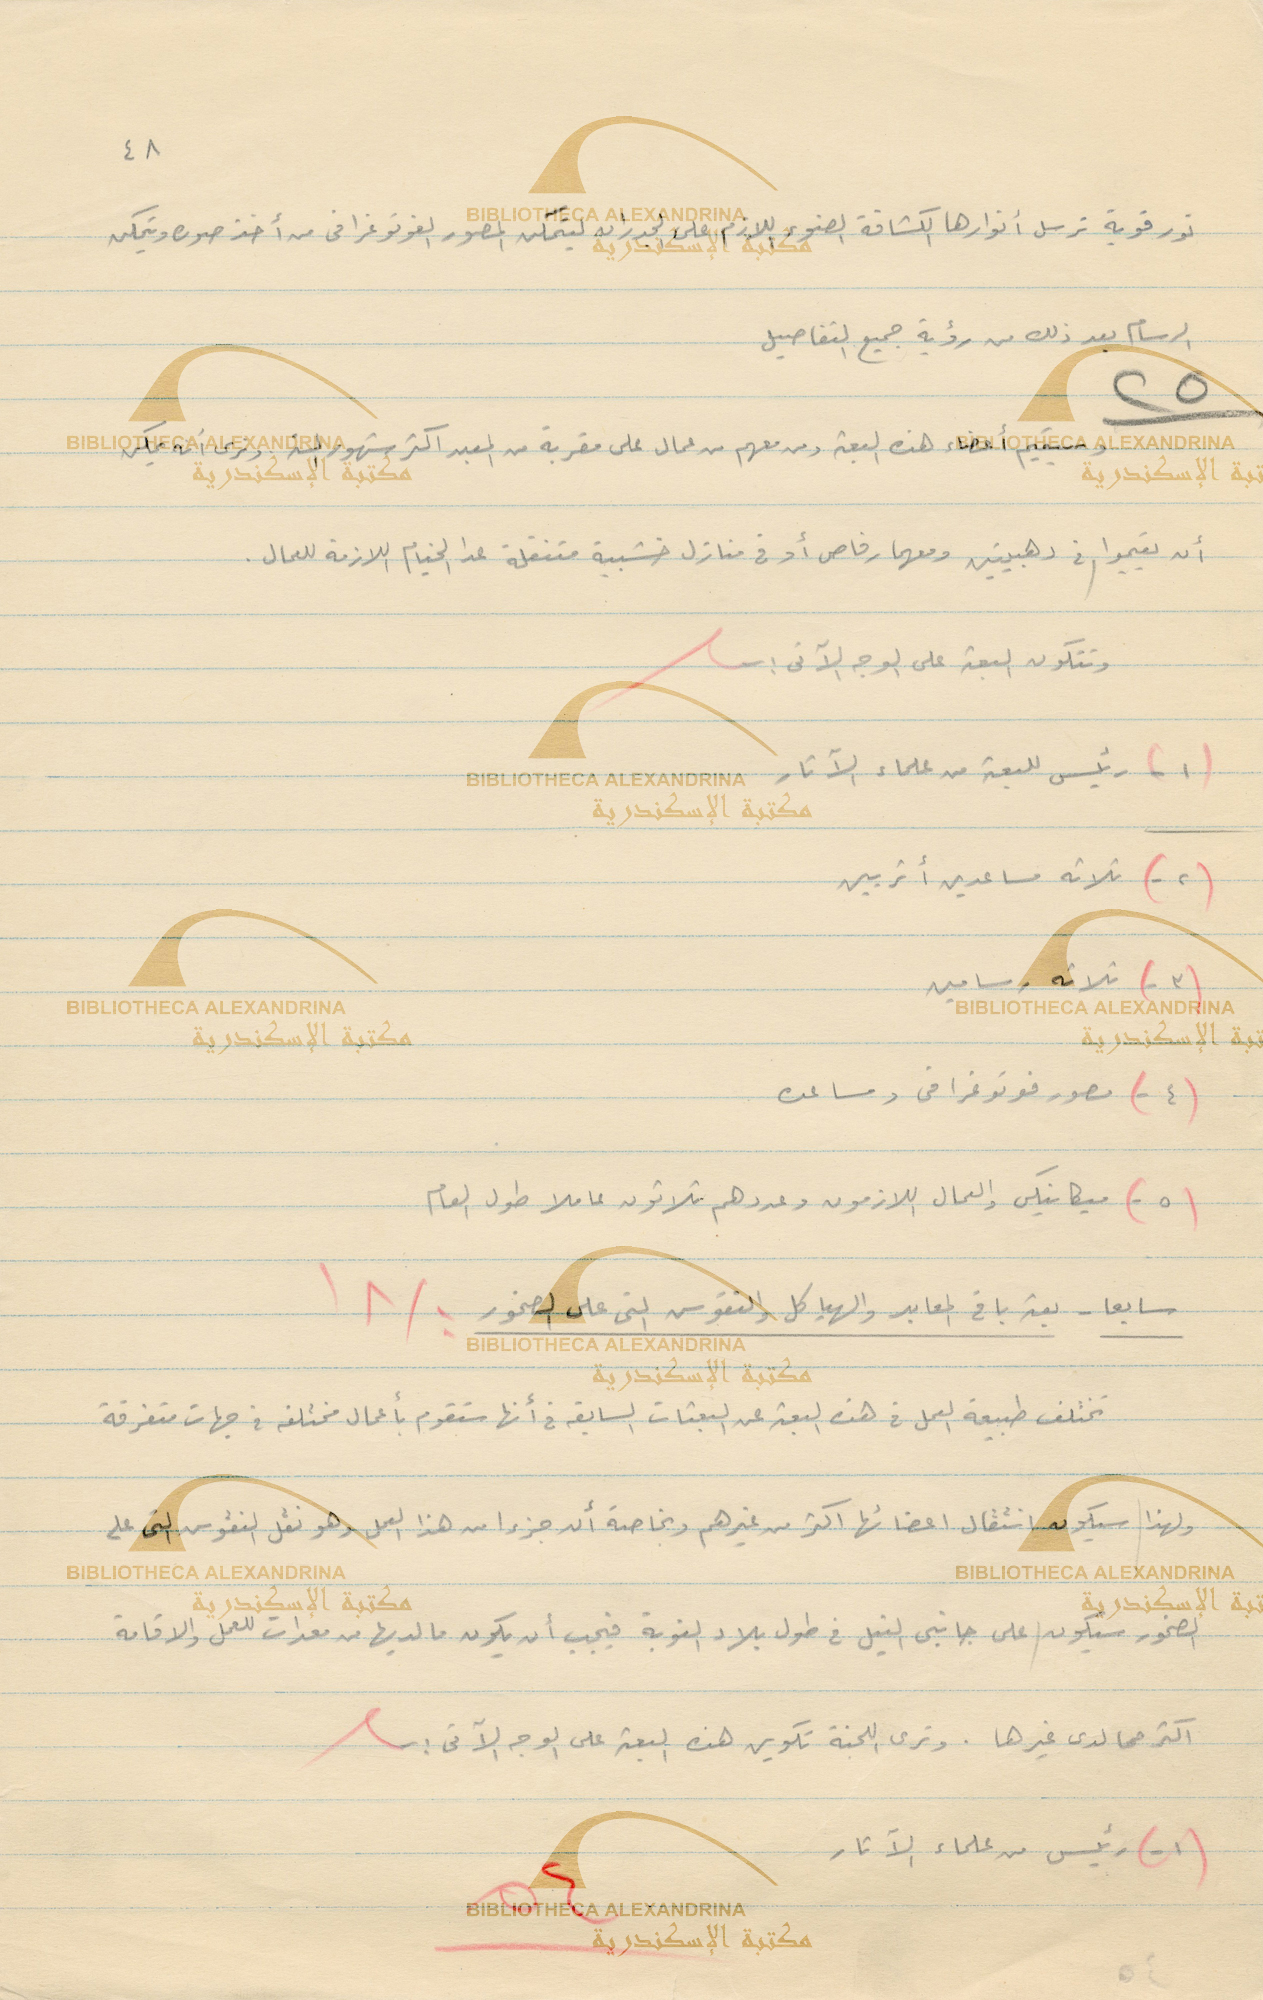 ٤٨
نور قوية ترسل أنوارها الكشافة الضوء اللازم على الجدران ليتمكن المصور الفوتوغرافى من أخذ صوره ويتمكن
الرسام بعد ذلك من رؤية جميع التفاصيل
٢٥
وستقيم أعضاء هذه البعثة ومن معهم من عمال على مقربة من المعبد أكثر شهور السنة ونرى أنه يمكن
أن يقيموا فى دهبيتين ومعهما رفاص أو فى منازل خشبية متنقلة عدا الخيام اللازمة للعمال .
وتتكون البعثة على الوجه الآتى :ـ
(١-) رئيس للبعثة من علماء الآثار
(٢-) ثلاثه مساعدين أثريين
(٣-) ثلاثه رسامين
(٤-) مصور فوتوغرافى ومساعده
(٥-) ميكانيكى والعمال اللازمون وعددهم ثلاثون عاملا طول العام
سابعا - بعثة باقى المعابد والهياكل والنقوش التى على الصخور
تختلف طبيعة العمل فى هذه البعثة عن البعثات السابقه فى أنها ستقوم بأعمال مختلفه فى جهات متفرقة
ولهذا سيكون انتقال اعضائها اكثر من غيرهم وبخاصة أن جزءا من هذا العمل وهو نقل النقوش التى على
الصخور سيكون على جانبى النيل فى طول بلاد النوبة فيجب أن يكون مالديها من معدات للعمل والاقامة
اكثر مما لدى غيرها . وترى اللجنة تكوين هذه البعثة على الوجه الآتى :ـ
(١-) رئيس من علماء الآثار
٥٤
BIBLIOTHECA ALEXANDRINA
مكتبة الإسكندرية